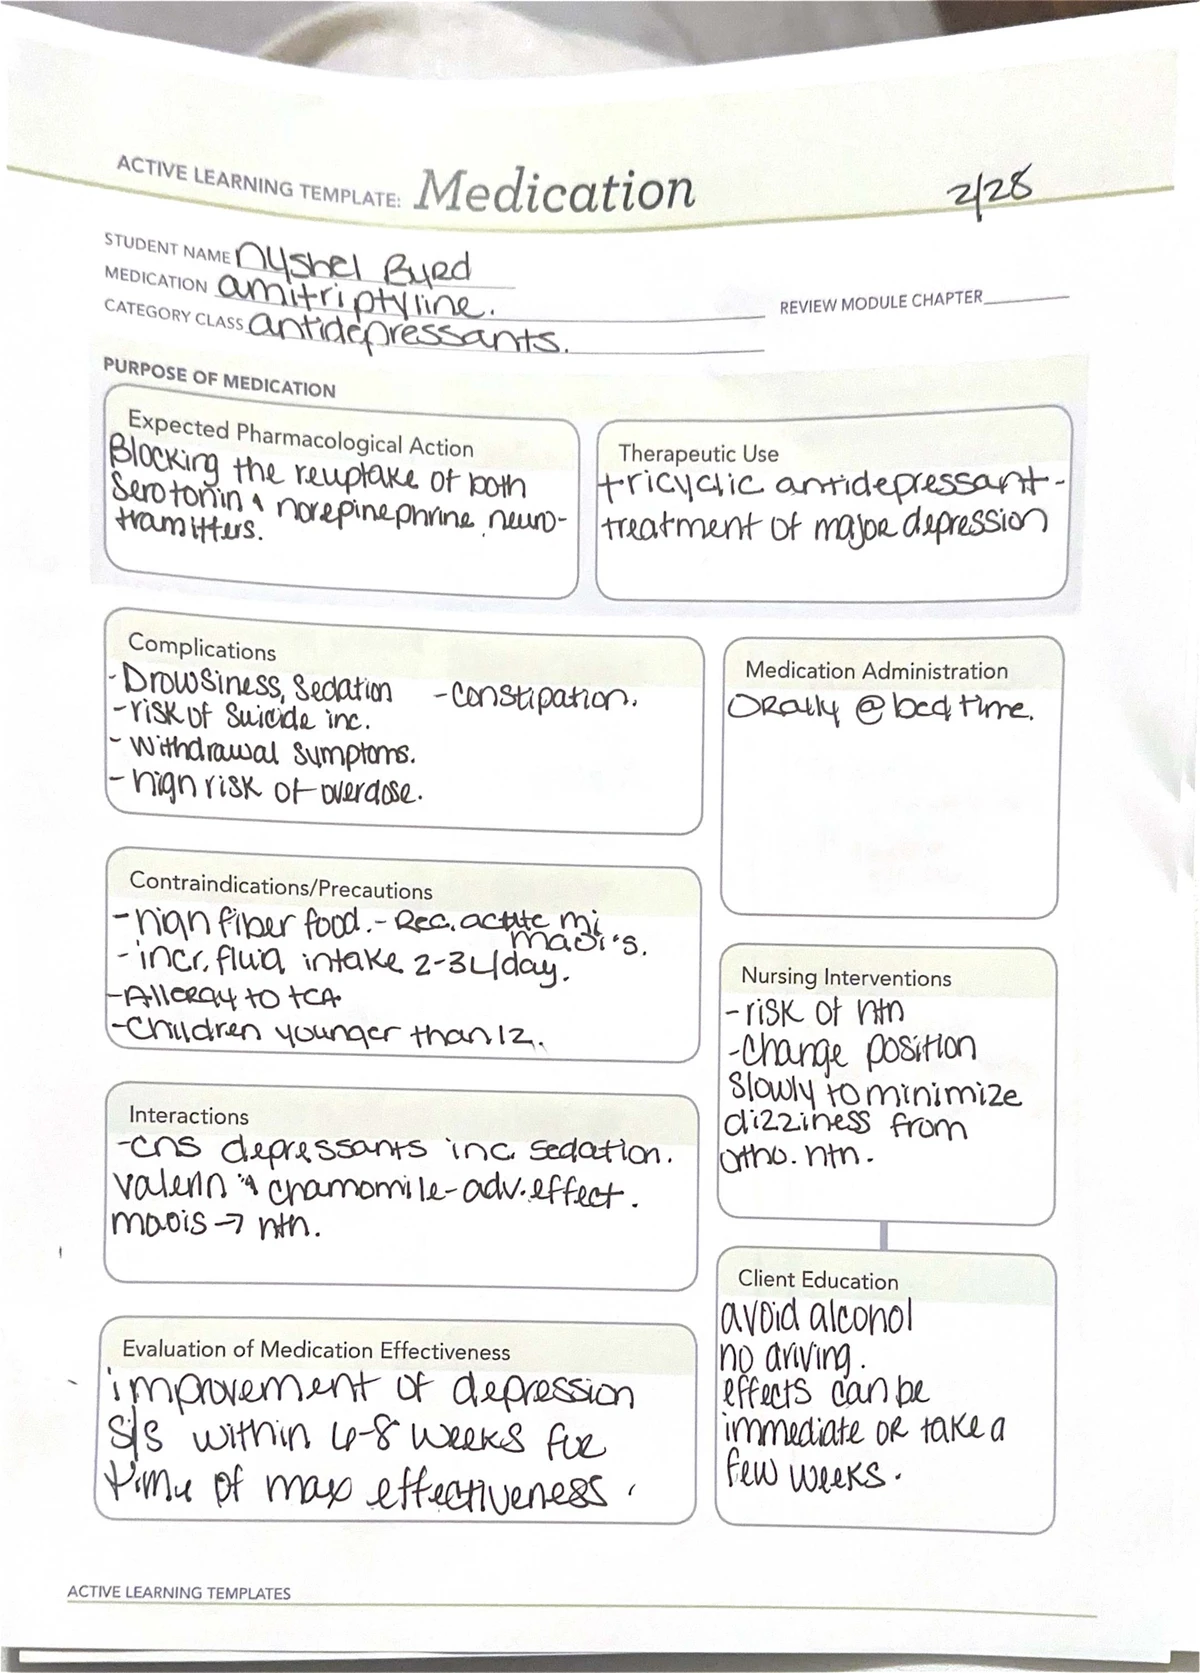 ACTIVE LEARNING TEMPLATE: Medication 2/28
STUDENT NAME Nyshel Byrd
MEDICATION amitriptyline.
REVIEW MODULE CHAPTER
CATEGORY CLASS antidepressants.
PURPOSE OF MEDICATION
Expected Pharmacological Action
Blocking the reuptake of both
Serotonin & norepinephrine neuro-
tramitters.
Therapeutic Use
tricyclic antidepressant-
treatment of major depression
Complications
-Drowsiness, Sedation -constipation.
-risk of Suicide inc.
- Withdrawal Symptoms.
- high risk of overdose.
Medication Administration
Orally @ bedtime.
Contraindications/Precautions
-high fiber food. - Rec. acute mi
maoi's.
- incr. fluid intake 2-3L/day.
-Allergy to TCA
-Children younger than 12.
Nursing Interventions
-risk of htn
-Change position
Slowly to minimize
dizziness from
ortho. htn.
Interactions
-cns depressants inc. sedation.
valerin & chamomile-adv. effect.
maois → htn.
Client Education
avoid alcohol
no driving.
effects can be
immediate or take a
few weeks.
Evaluation of Medication Effectiveness
improvement of depression
S/S within 6-8 weeks for
time of max effectiveness.
ACTIVE LEARNING TEMPLATES